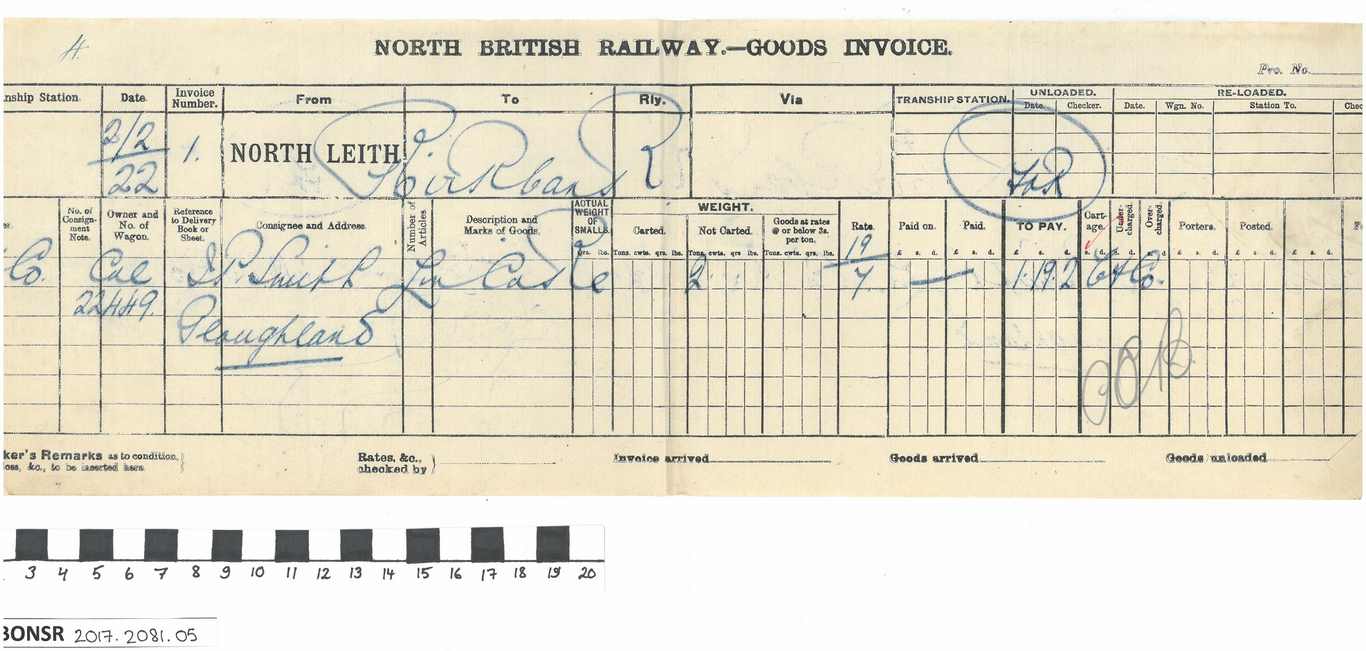 4.
NORTH BRITISH RAILWAY.—GOODS INVOICE.
Pro. No.
nship Station. Date. Invoice Number. From To Rly. Via TRANSHIP STATION. UNLOADED. Date. Checker. RE-LOADED. Date. Wgn. No. Station To. Chec
2/2/22 1. NORTH LEITH Kirkbank R FoR
No. of Consignment Note. Owner and No. of Wagon. Reference to Delivery Book or Sheet. Consignee and Address. Number of Articles Description and Marks of Goods. ACTUAL WEIGHT OF SMALLS. qrs. lbs. WEIGHT. Carted. Tons. cwts. qrs lbs. Not Carted. Tons. cwts. qrs lbs. Goods at rates @ or below 3s. per ton. Tons. cwts. qrs. lbs. Rate. Paid on. £ s. d. Paid. £ s. d. TO PAY. £ s. d. Cartage. s. d. Undercharged. s. d. Overcharged. s. d. Porters. £ s. d. Posted. £ s. d.
Co. Cal Smith Lin Cake 2 19/7 — 1.19.2 Co.
22449
Ploughland
ker's Remarks as to condition,
loss, &c., to be inserted here.
Rates, &c., checked by
Invoice arrived
Goods arrived
Goods unloaded
3 4 5 6 7 8 9 10 11 12 13 14 15 16 17 18 19 20
BONSR 2017.2081.05